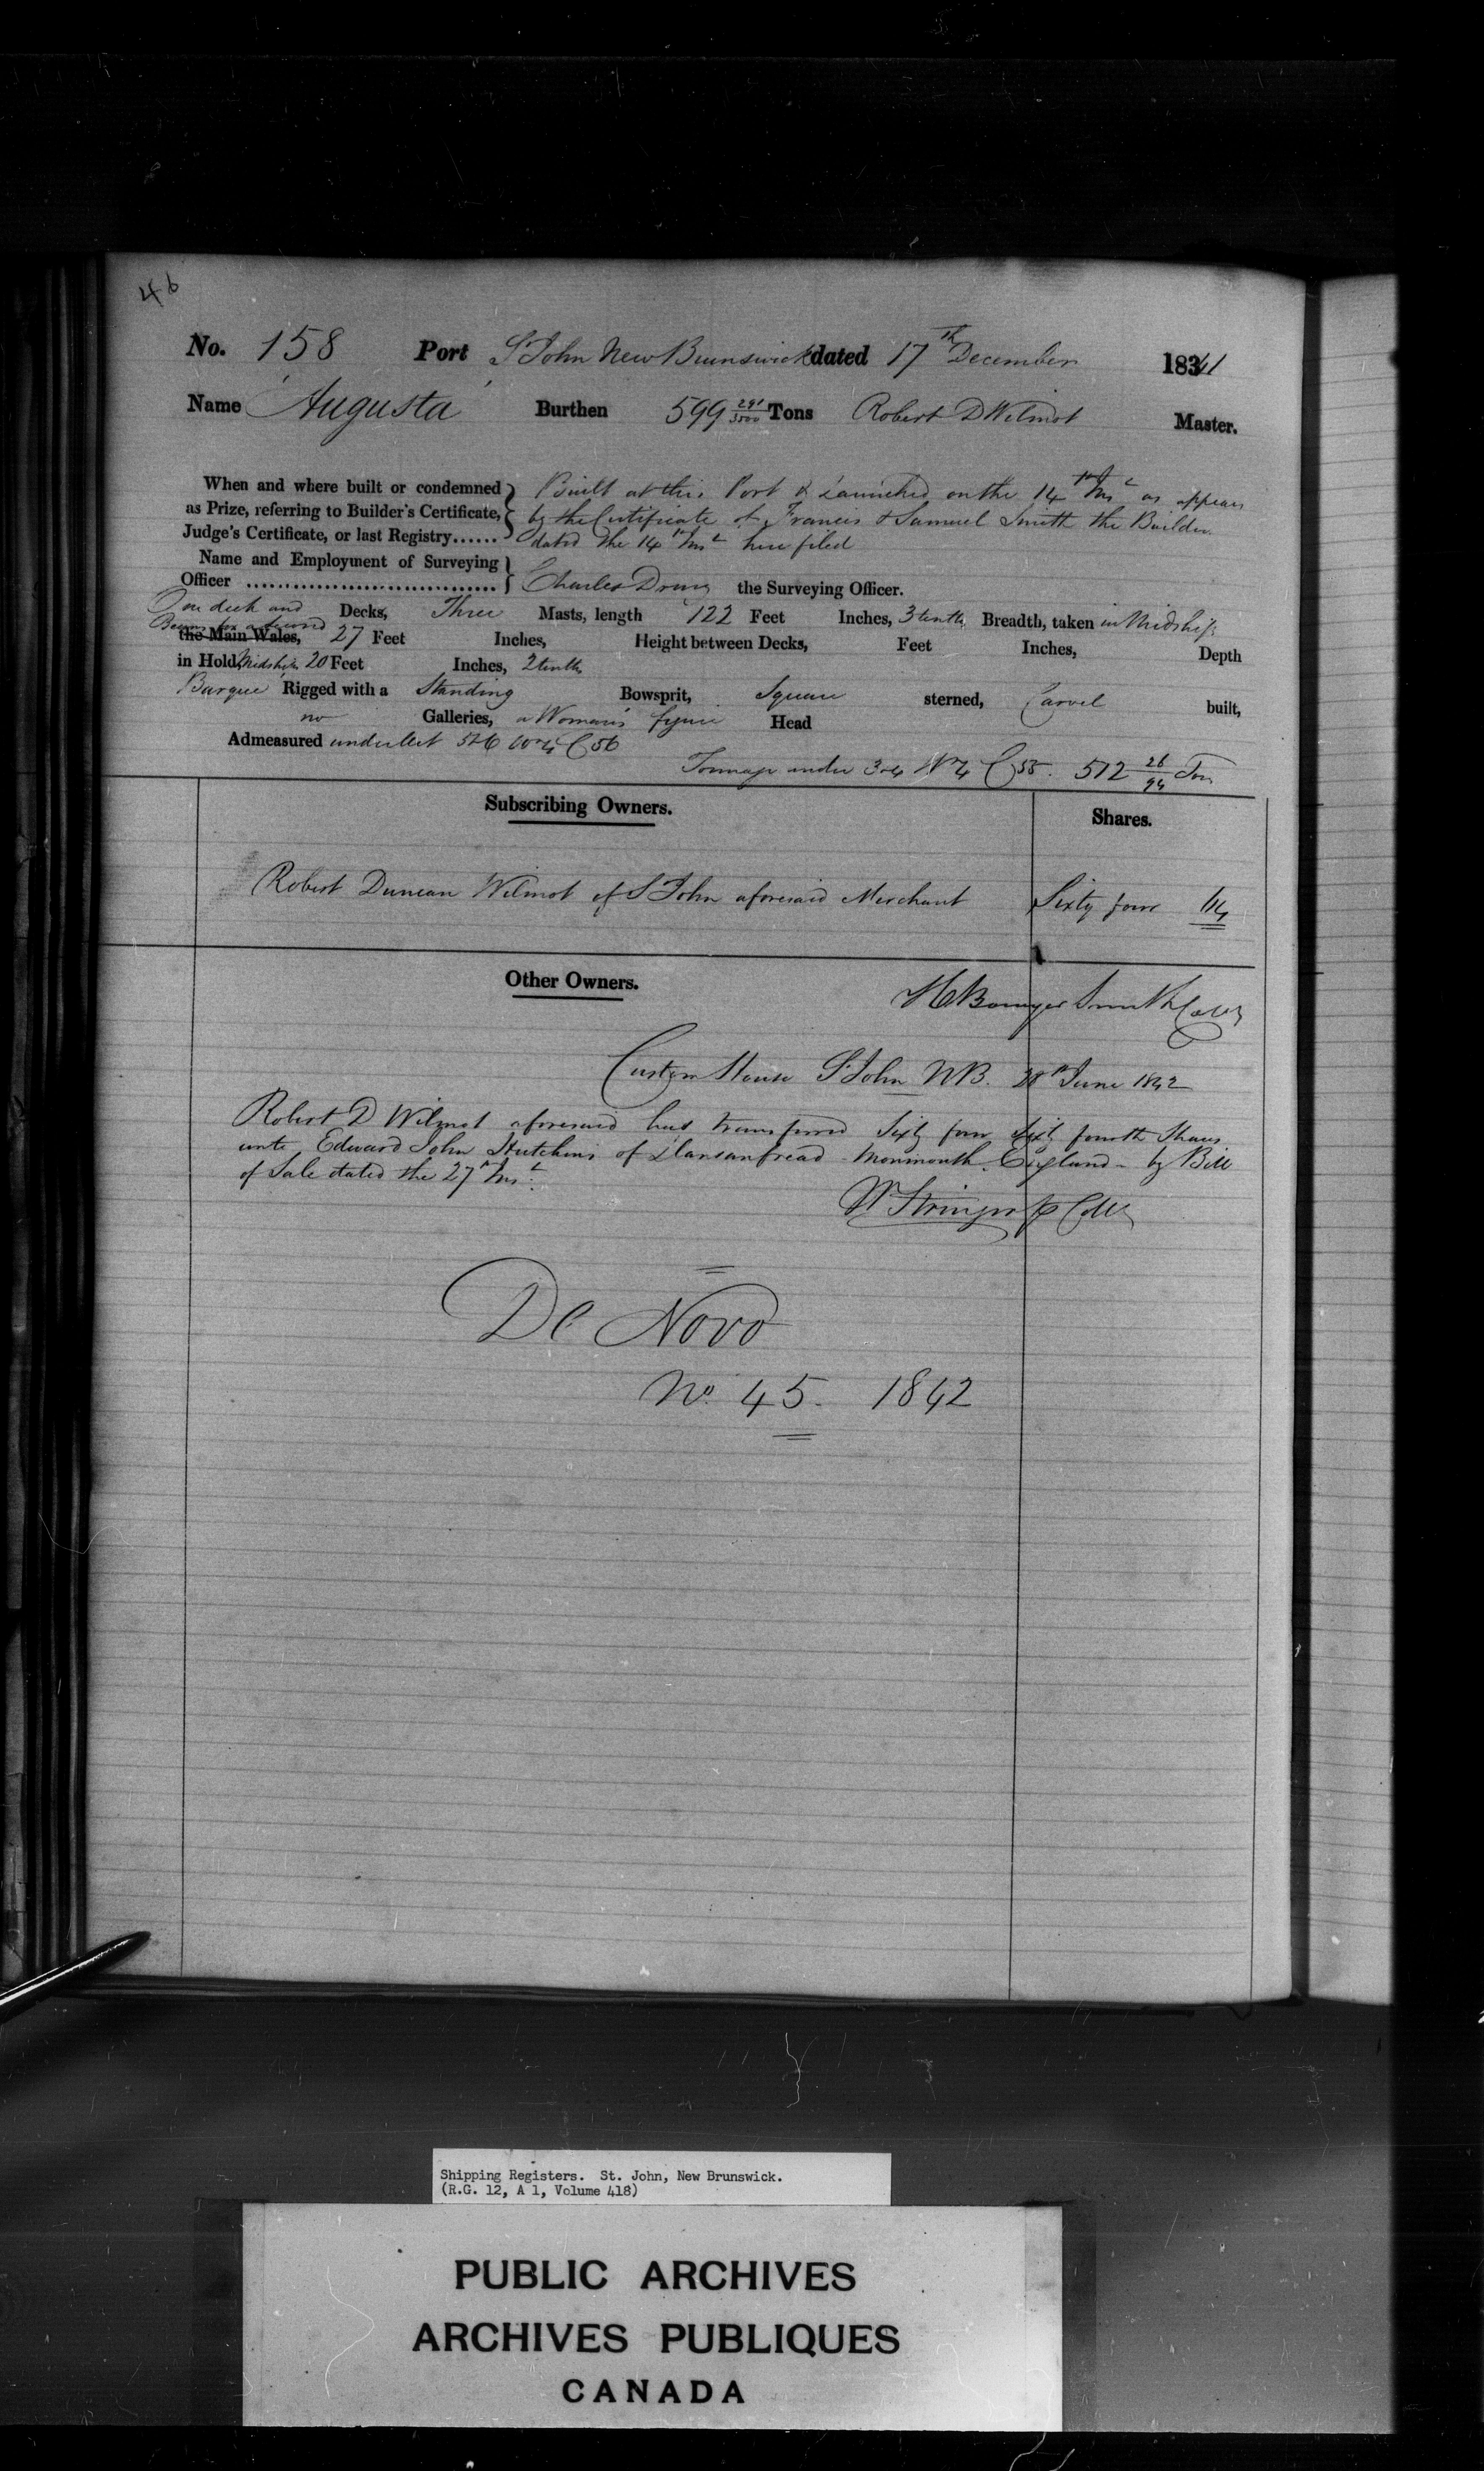 46
No. 158 Port St John New Brunswick dated 17th December 1841
Name Augusta Burthen 599 291/3500 Tons Robert D Wilmot Master.
When and where built or condemned } Built at this Port & Launched on the 14th Inst as appears
as Prize, referring to Builder's Certificate, by the Certificate of Francis & Samuel Smith the Builders
Judge's Certificate, or last Registry...... dated the 14th Inst here filed
Name and Employment of Surveying
Officer ................................ } Charles Drury the Surveying Officer.
One deck and Decks, Three Masts, length 122 Feet Inches, 3 tenths Breadth, taken in Midships
Beams for a second
the Main Wales, 27 Feet Inches, Height between Decks, Feet Inches, Depth
in Hold Midships 20 Feet Inches, 2 tenths
Barque Rigged with a Standing Bowsprit, Square sterned, Carvel built,
no Galleries, a Woman's figure Head
Admeasured under Act 5 & 6 Wm 4 C 56
Tonnage under 3 & 4 Wm 4 C 55. 512 26/94 Tons
Subscribing Owners. Shares.
Robert Duncan Wilmot of St John aforesaid Merchant Sixty four 64
Other Owners.
H Bowyer Smith Collr
Custom House St John NB. 28th June 1842
Robert D Wilmot aforesaid has transferred Sixty four Sixty fourth Shares
unto Edward John Hutchins of Llansanfread Monmouth England - by Bill
of Sale dated the 27th Inst.
W Stringer p Collr
De Novo
No. 45. 1842
Shipping Registers. St. John, New Brunswick.
(R.G. 12, A 1, Volume 418)
PUBLIC ARCHIVES
ARCHIVES PUBLIQUES
CANADA